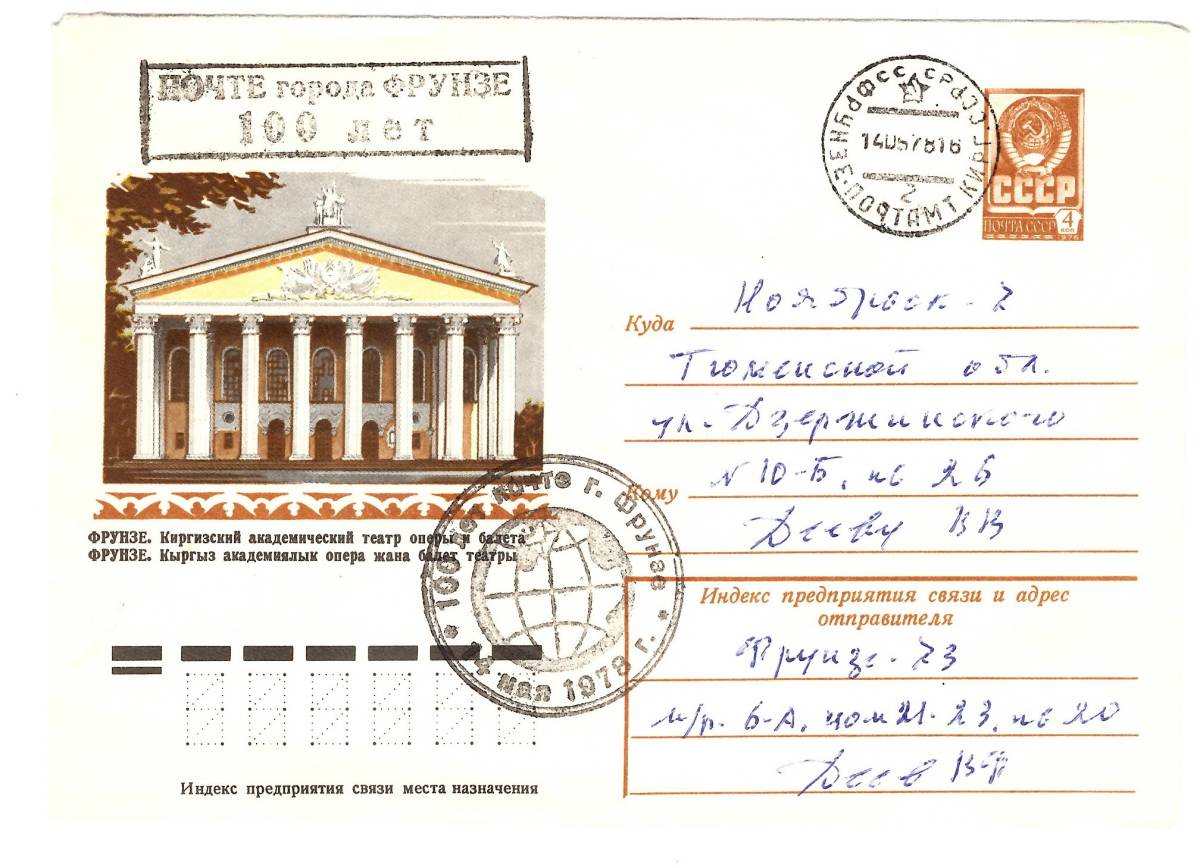 ПОЧТЕ города ФРУНЗЕ
100 лет
ФРУНЗЕ ПОЧТАМТ КИРГ. ССР
14057816
2
СССР
ПОЧТА СССР
4
КОП
1978
Куда
Ноябрьск-2
Тюменской обл.
ул. Дзержинского
N 10-Б, кв 26
Кому
Дееву ВВ
ФРУНЗЕ. Киргизский академический театр оперы и балета
ФРУНЗЕ. Кыргыз академиялык опера жана балет театры
* 100 лет почте г. Фрунзе *
14 мая 1978 г.
Индекс предприятия связи и адрес
отправителя
Фрунзе-23
м/р. 6-А, дом 21-23, кв 20
Деев ВФ
Индекс предприятия связи места назначения